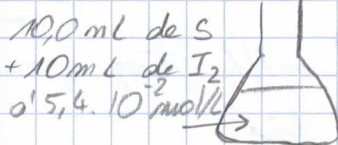 10,0 mL de S
+ 10 mL de I₂
à 5,4.10⁻² mol/L